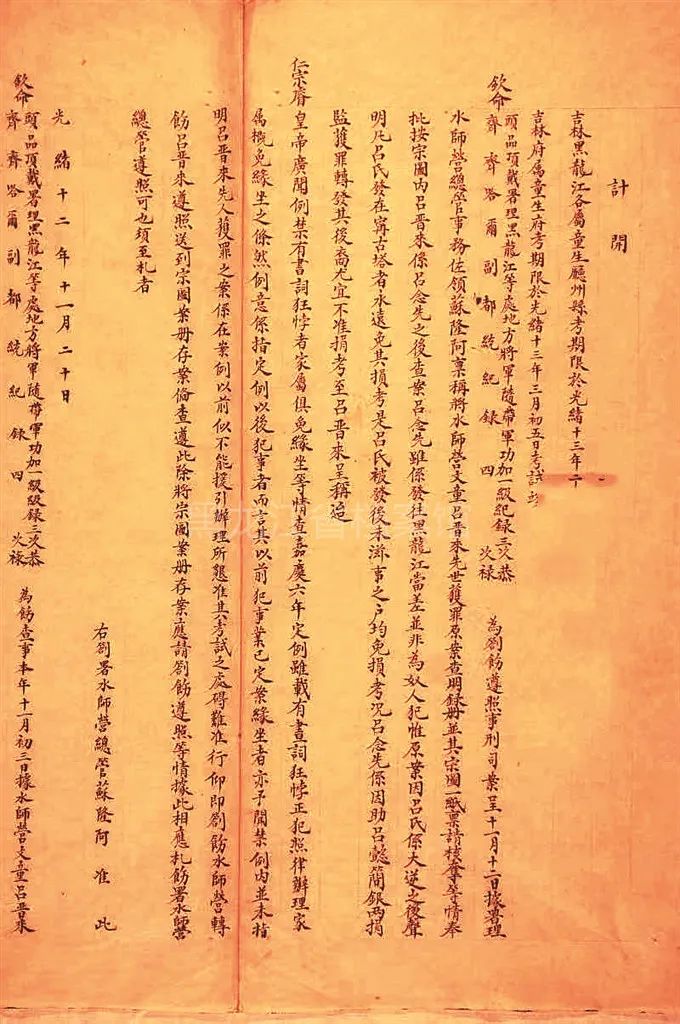 計開
吉林黑龍江各屬童生廳州縣考期限於光緒十三年二
吉林府屬童生府考期限於光緒十三年三月初五日考試
欽命頭品頂戴署理黑龍江等處地方將軍隨帶軍功加一級紀錄三次恭
齊齊哈爾副都統紀錄四次祿
為劄飭遵照事刑司案呈十一月十二日據署理
水師營總管事務佐領蘇隆阿稟稱將水師營文童呂晋來先世獲罪原案查明錄冊並其宗圖一紙稟請核奪等情奉
批按宗圖內呂晋來係呂念先之後查案呂念先雖係發往黑龍江當差並非為奴人犯惟原案因呂氏係大逆之後聲
明凡呂氏發在寧古塔者永遠免其捐考是呂氏被發後未滋事之戶均免捐考況呂念先係因助呂懿簡銀兩捐
監獲罪轉發其後裔尤宜不准捐考至呂晋來呈稱迨
仁宗睿皇帝廣開例禁有書詞狂悖者家屬俱免緣坐等情查嘉慶六年定例雖載有書詞狂悖正犯照律辦理家
屬概免緣坐之條然例意係指定例以後犯事者而言其以前犯事業已定案緣坐者亦予開禁例內並未指
明呂晋來先人獲罪之案係在案例以前似不能援引辦理所懇准其考試之處碍難准行仰即劄飭水師營轉
飭呂晋來遵照送到宗圖案冊存案備查遵此除將宗圖案冊存案應請劄飭遵照等情據此相應札飭署水師營
總管遵照可也須至札者
右劄署水師營總管蘇隆阿准此
光緒十二年十一月二十日
欽命頭品頂戴署理黑龍江等處地方將軍隨帶軍功加一級紀錄三次恭
齊齊哈爾副都統紀錄四次祿
為飭查事本年十一月初三日據水師營文童呂晋來
黑龙江省档案馆